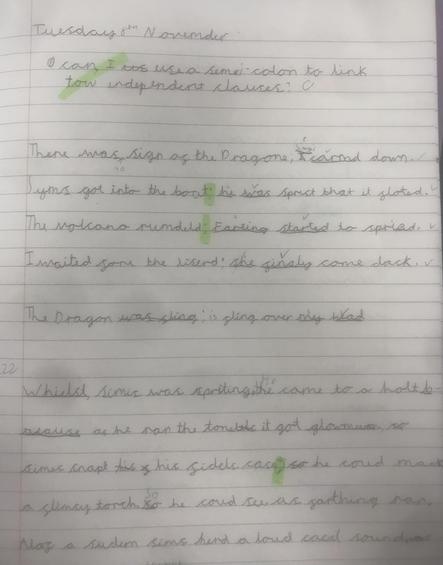 Tuesday 8th November
can I use a semi-colon to link
tow independent clauses:
There was no sign of the Dragone, I carmd down.
Syms got into the boat; he was sprust that it floted.
The volcano rumbeld; Earting started to spriad.
I waited fore the liserd; she finaly come back.
The Dragon was fling; is fling over my head
22
Whielst, simes was spriting, he came to a holt b-
ecause as he ran the it got so
simes snapt his fidels case; so he coud mack
a flimsy torch. So he coud see as farthing ran.
a sudem sims herd a loud sound